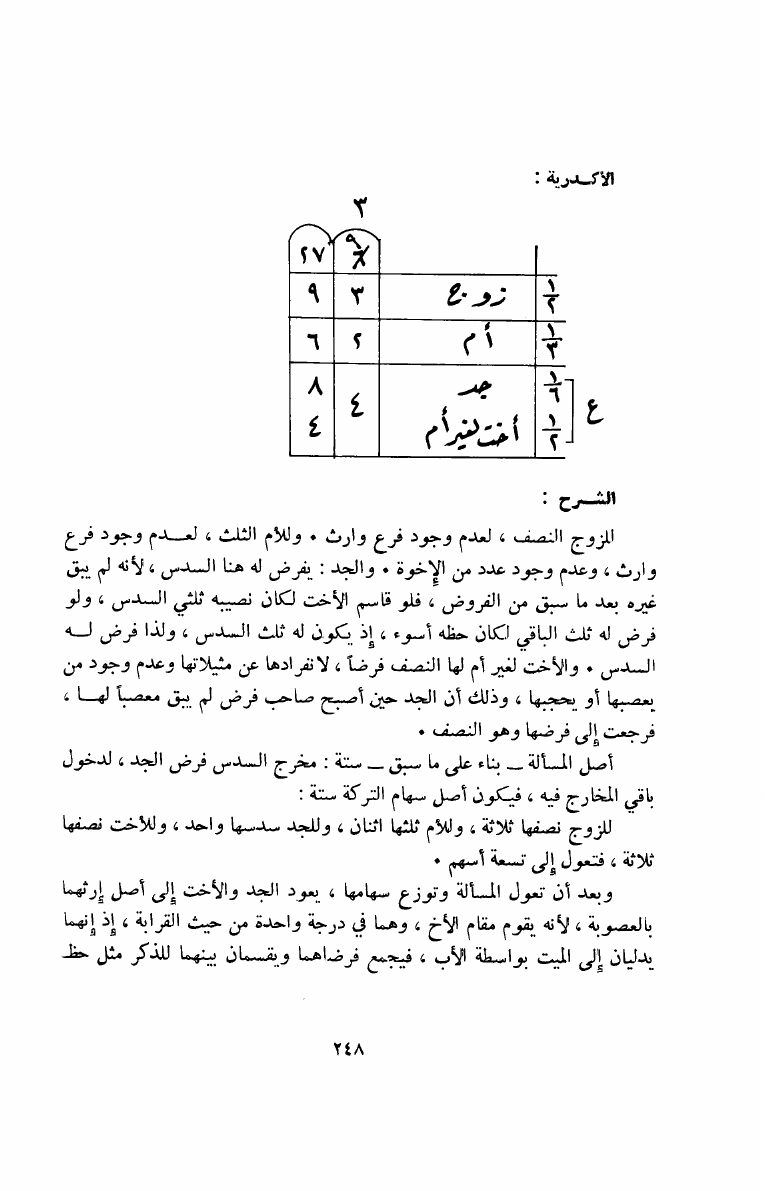 الأكـدرية :
٣
٢٧ ٩ ٦
٩ ٣ زوج ١/٢
٦ ٢ أم ١/٣
٨ ٤ جد ١/٦ ع
٤ أخت لغير أم ١/٢
الشـرح :
للزوج النصف ، لعدم وجود فرع وارث • وللأم الثلث ، لعــدم وجود فرع
وارث ، وعدم وجود عدد من الإخوة • والجد : يفرض له هنا السدس ، لأنه لم يبق
غيره بعد ما سبق من الفروض ، فلو قاسم الأخت لكان نصيبه ثلثي السدس ، ولو
فرض له ثلث الباقي لكان حظه أسوء ، إذ يكون له ثلث السدس ، ولذا فرض لــه
السدس • والأخت لغير أم لها النصف فرضاً ، لانفرادها عن مثيلاتها وعدم وجود من
يعصبها أو يحجبها ، وذلك أن الجد حين أصبح صاحب فرض لم يبق معصباً لهــا ،
فرجعت إلى فرضها وهو النصف •
أصل المسألة ــ بناء على ما سبق ــ ستة : مخرج السدس فرض الجد ، لدخول
باقي المخارج فيه ، فيكون أصل سهام التركة ستة :
للزوج نصفها ثلاثة ، وللأم ثلثها اثنان ، وللجد سدسها واحد ، وللأخت نصفها
ثلاثة ، فتعول إلى تسعة أسهم •
وبعد أن تعول المسألة وتوزع سهامها ، يعود الجد والأخت إلى أصل إرثهما
بالعصوبة ، لأنه يقوم مقام الأخ ، وهما في درجة واحدة من حيث القرابة ، إذ إنهما
يدليان إلى الميت بواسطة الأب ، فيجمع فرضاهما ويقسمان بينهما للذكر مثل حظ
٢٤٨